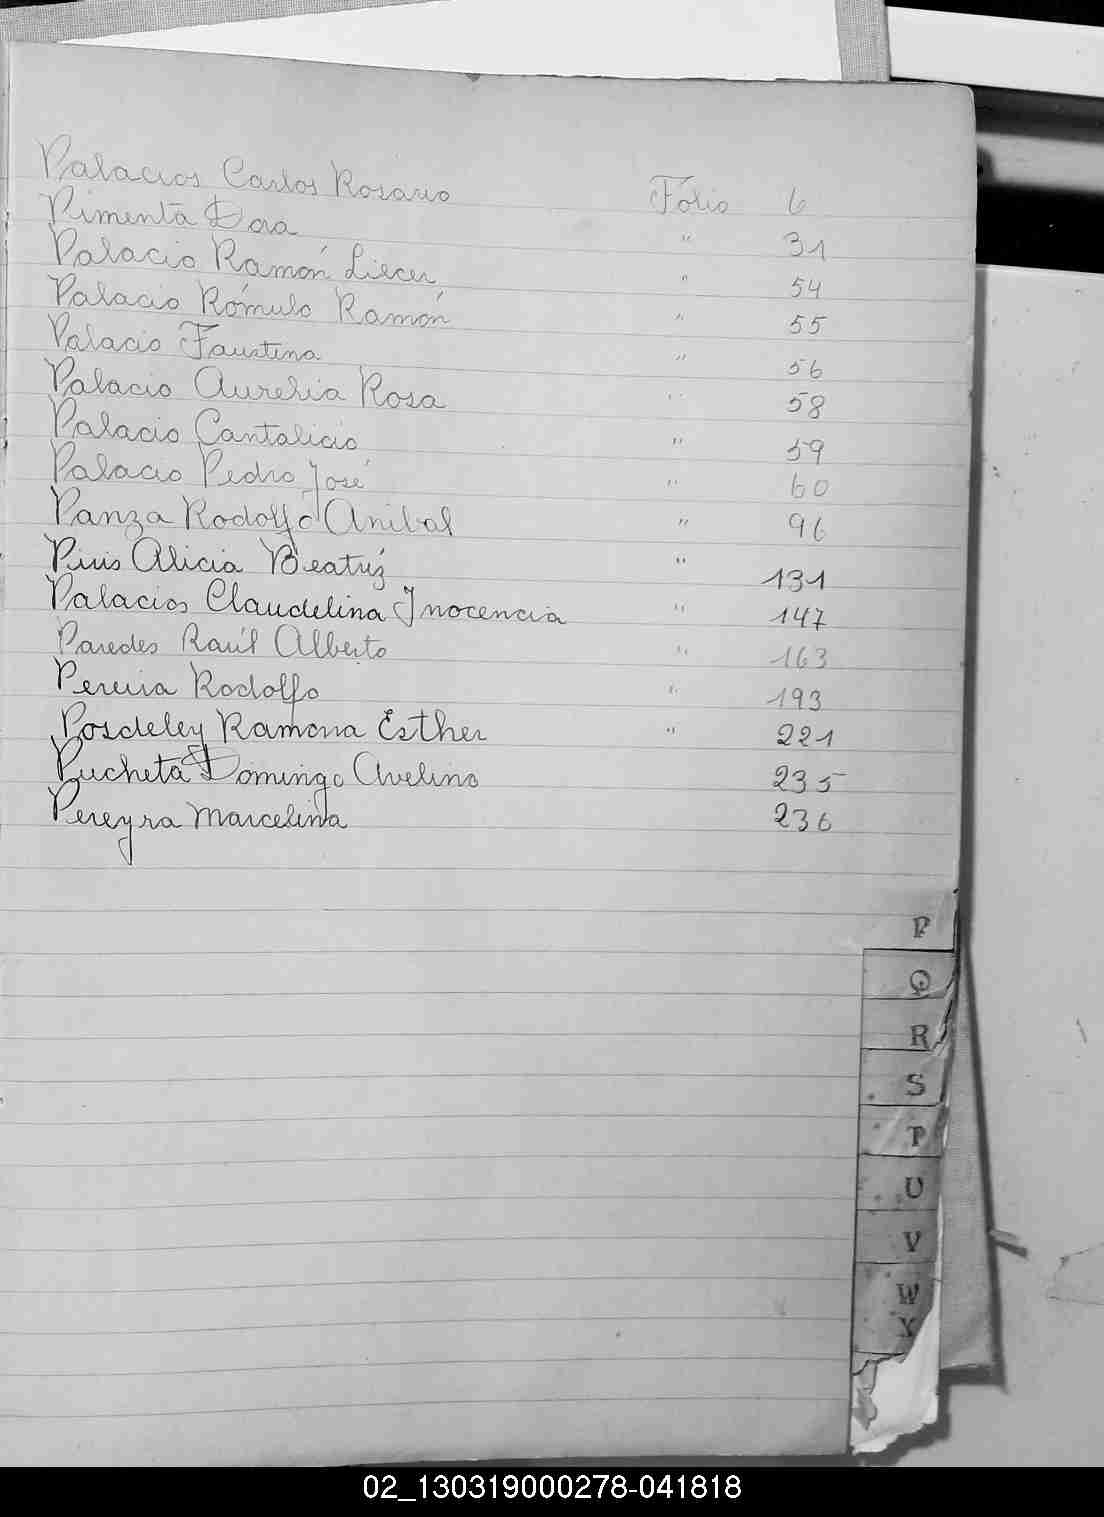 Palacios Carlos Rosario Folio 6
Pimentã Dora " 31
Palacio Ramón Liecer " 54
Palacio Rómulo Ramón " 55
Palacio Faustina " 56
Palacio Aurelia Rosa " 58
Palacio Cantalicio " 59
Palacio Pedro José " 60
Panza Rodolfo Anibal " 96
Piris Alicia Beatríz " 131
Palacios Claudelina Inocencia " 147
Paredes Raúl Alberto " 163
Pereira Rodolfo " 193
Posdeley Ramona Esther " 221
Pucheta Domingo Avelino 235
Pereyra Marcelina 236
P
Q
R
S
T
U
V
W
X
02_130319000278-041818